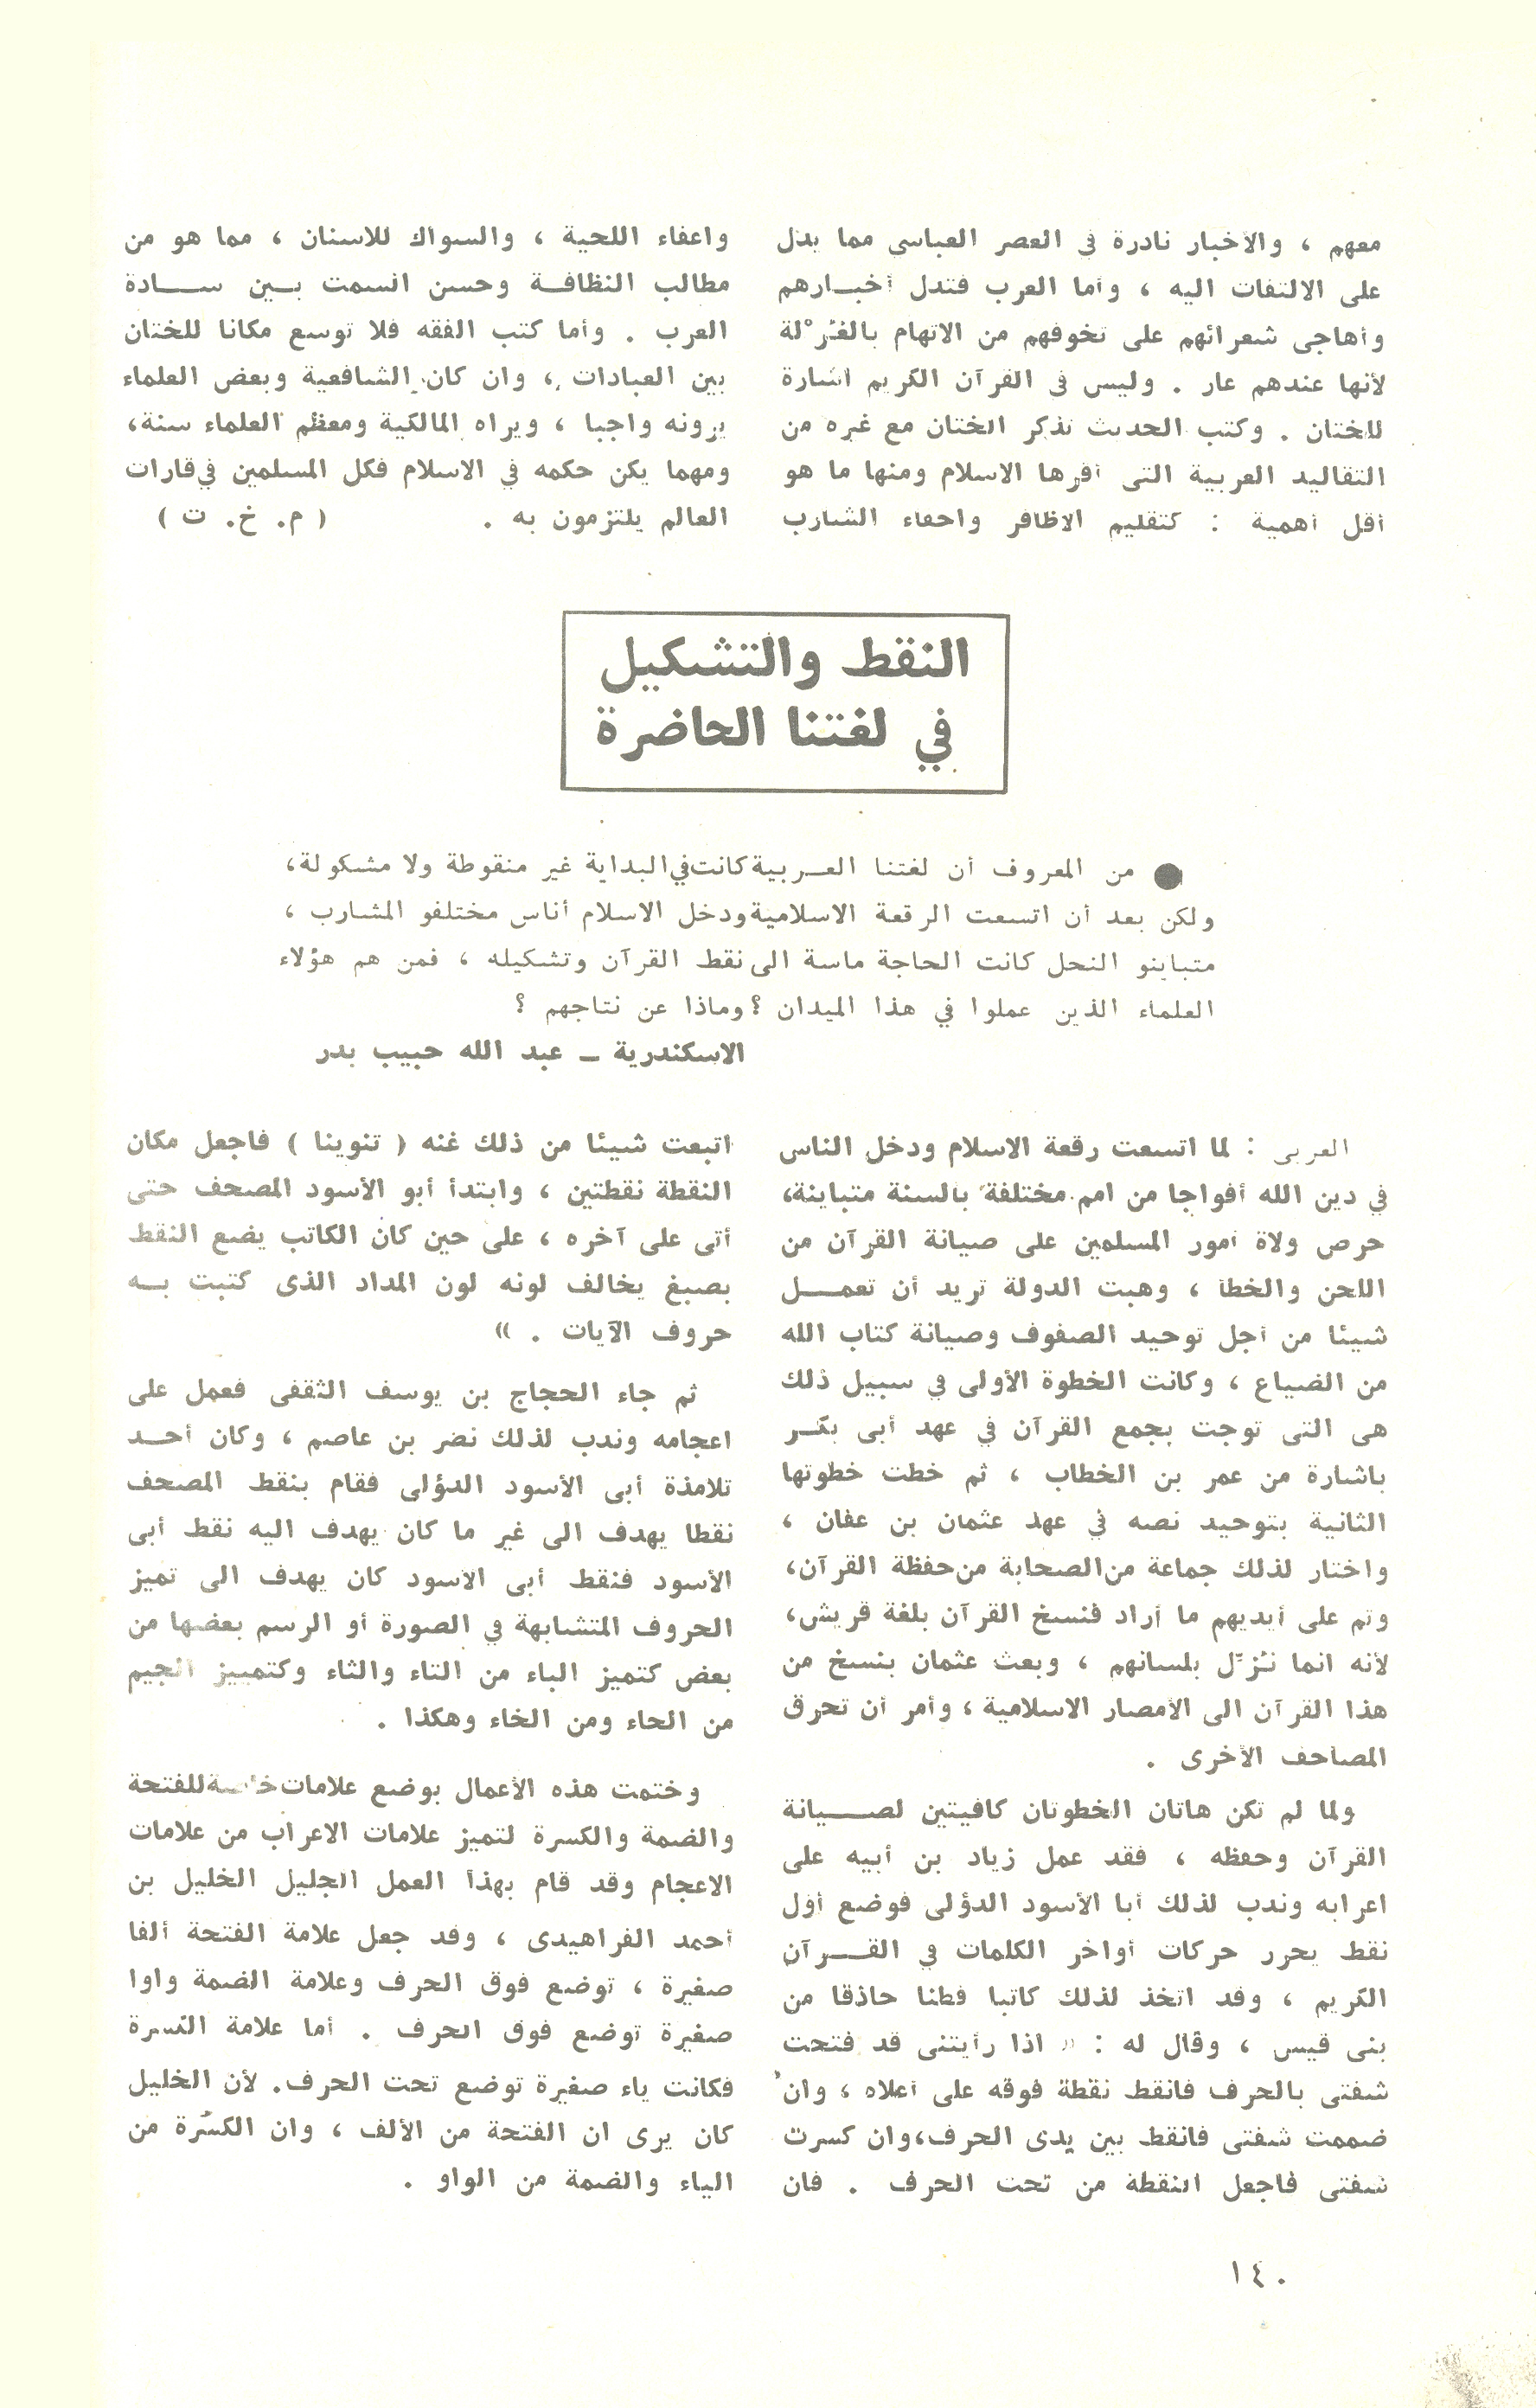 معهم ، والأخبار نادرة في العصر العباسى مما يدل
على الالتفات اليه ، وأما العرب فتدل أخبـارهم
وأهاجى شعرائهم على تخوفهم من الاتهام بالغُرْلة
لأنها عندهم عار . وليس في القرآن الكريم اشارة
للختان . وكتب الحديث تذكر الختان مع غيره من
التقاليد العربية التى أقرها الاسلام ومنها ما هو
أقل أهمية : كتقليم الاظافر واحفاء الشارب
واعفاء اللحية ، والسواك للاسنان ، مما هو من
مطالب النظافـة وحسن السمت بـين سـادة
العرب . وأما كتب الفقه فلا توسع مكانا للختان
بين العبادات ، وان كان الشافعية وبعض العلماء
يرونه واجبا ، ويراه المالكية ومعظم العلماء سنة،
ومهما يكن حكمه في الاسلام فكل المسلمين في قارات
العالم يلتزمون به . ( م. خ. ت )
النقط والتشكيل
في لغتنا الحاضرة
● من المعروف أن لغتنا العـربية كانت في البداية غير منقوطة ولا مشكولة،
ولكن بعد أن اتسعت الرقعة الاسلامية ودخل الاسلام أناس مختلفو المشارب ،
متباينو النحل كانت الحاجة ماسة الى نقط القرآن وتشكيله ، فمن هم هؤلاء
العلماء الذين عملوا في هذا الميدان ؟ وماذا عن نتاجهم ؟
الاسكندرية ــ عبد الله حبيب بدر
العربى : لما اتسعت رقعة الاسلام ودخل الناس
في دين الله أفواجا من امم مختلفة بالسنة متباينة،
حرص ولاة أمور المسلمين على صيانة القرآن من
اللحن والخطأ ، وهبت الدولة تريد أن تعمـل
شيئا من أجل توحيد الصفوف وصيانة كتاب الله
من الضياع ، وكانت الخطوة الأولى في سبيل ذلك
هى التى توجت بجمع القرآن في عهد أبى بكـر
باشارة من عمر بن الخطاب ، ثم خطت خطوتها
الثانية بتوحيد نصه في عهد عثمان بن عفان ،
واختار لذلك جماعة من الصحابة من حفظة القرآن،
وتم على أيديهم ما أراد فنسخ القرآن بلغة قريش،
لأنه انما نُزِّل بلسانهم ، وبعث عثمان بنسخ من
هذا القرآن الى الأمصار الاسلامية ، وأمر أن تحرق
المصاحف الأخرى .
ولما لم تكن هاتان الخطوتان كافيتين لصـيانة
القرآن وحفظه ، فقد عمل زياد بن أبيه على
اعرابه وندب لذلك أبا الأسود الدؤلى فوضع أول
نقط يحرر حركات أواخر الكلمات في القـرآن
الكريم ، وقد اتخذ لذلك كاتبا فطنا حاذقا من
بنى قيس ، وقال له : « اذا رأيتنى قد فتحت
شفتى بالحرف فانقط نقطة فوقه على أعلاه ، وان
ضممت شفتى فانقط بين يدى الحرف، وان كسرت
شفتى فاجعل النقطة من تحت الحرف . فان
اتبعت شيئا من ذلك غنه ( تنوينا ) فاجعل مكان
النقطة نقطتين ، وابتدأ أبو الأسود المصحف حتى
أتى على آخره ، على حين كان الكاتب يضع النقط
بصبغ يخالف لونه لون المداد الذى كتبت بـه
حروف الآيات . »
ثم جاء الحجاج بن يوسف الثقفى فعمل على
اعجامه وندب لذلك نضر بن عاصم ، وكان أحـد
تلامذة أبى الأسود الدؤلى فقام بنقط المصحف
نقطا يهدف الى غير ما كان يهدف اليه نقط أبى
الأسود فنقط أبى الأسود كان يهدف الى تميز
الحروف المتشابهة في الصورة أو الرسم بعضها من
بعض كتميز الباء من التاء والثاء وكتمييز الجيم
من الحاء ومن الخاء وهكذا .
وختمت هذه الأعمال بوضع علامات خاصة للفتحة
والضمة والكسرة لتميز علامات الاعراب من علامات
الاعجام وقد قام بهذا العمل الجليل الخليل بن
أحمد الفراهيدى ، وقد جعل علامة الفتحة ألفا
صغيرة ، توضع فوق الحرف وعلامة الضمة واوا
صغيرة توضع فوق الحرف . أما علامة الكسرة
فكانت ياء صغيرة توضع تحت الحرف. لأن الخليل
كان يرى ان الفتحة من الألف ، وان الكسرة من
الياء والضمة من الواو .
١٤٠